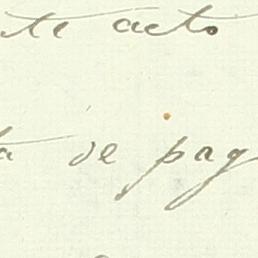 te acto
de pag